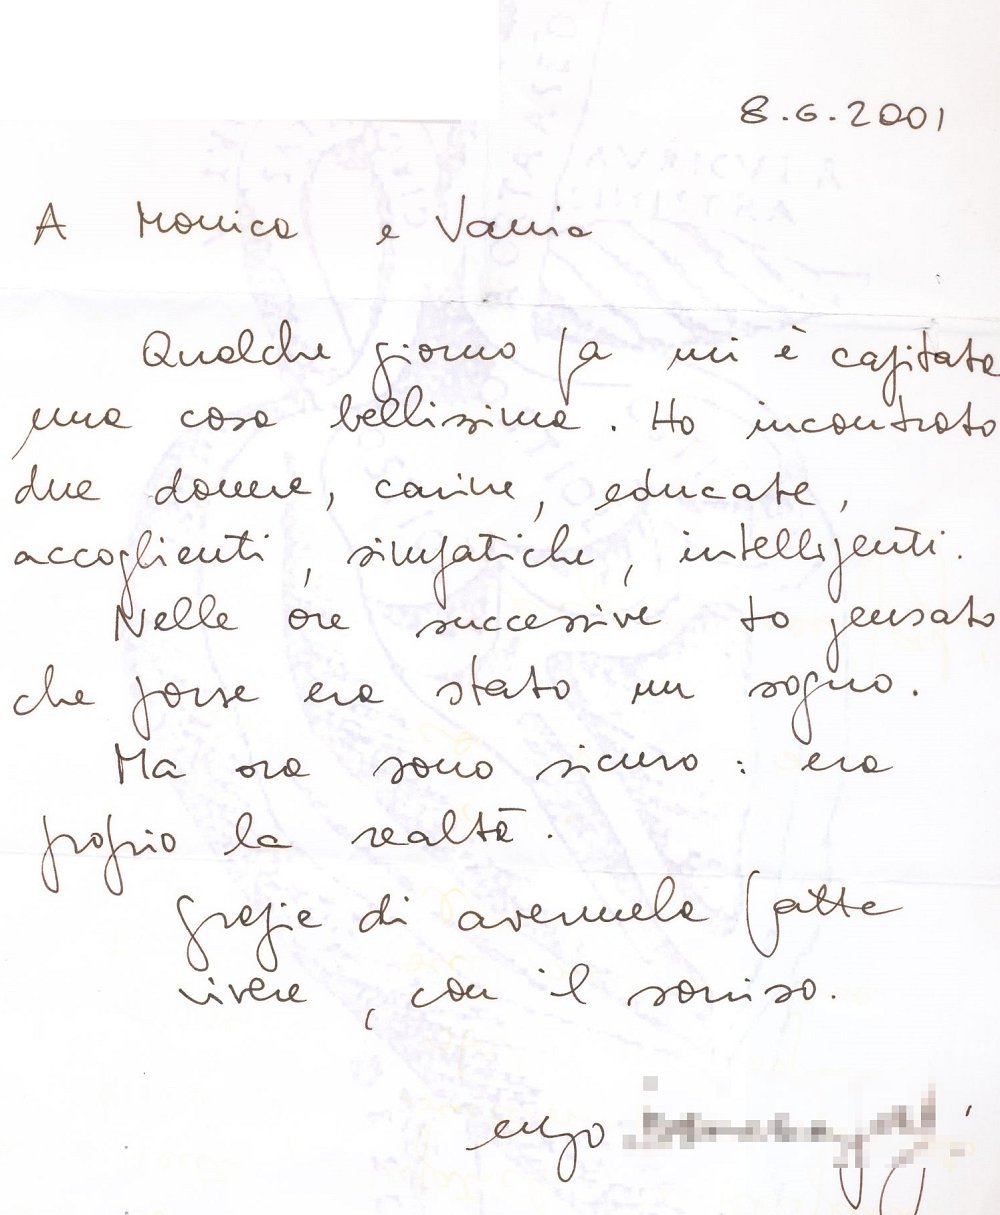 8.6.2001
A Monica e Vania
Qualche giorno fa mi è capitata
una cosa bellissima. Ho incontrato
due donne, carine, educate,
accoglienti, simpatiche, intelligenti.
Nelle ore successive ho pensato
che forse era stato un sogno.
Ma ora sono sicuro: era
proprio la realtà.
Grazie di avermela fatta
vivere, con il sorriso.
enzo